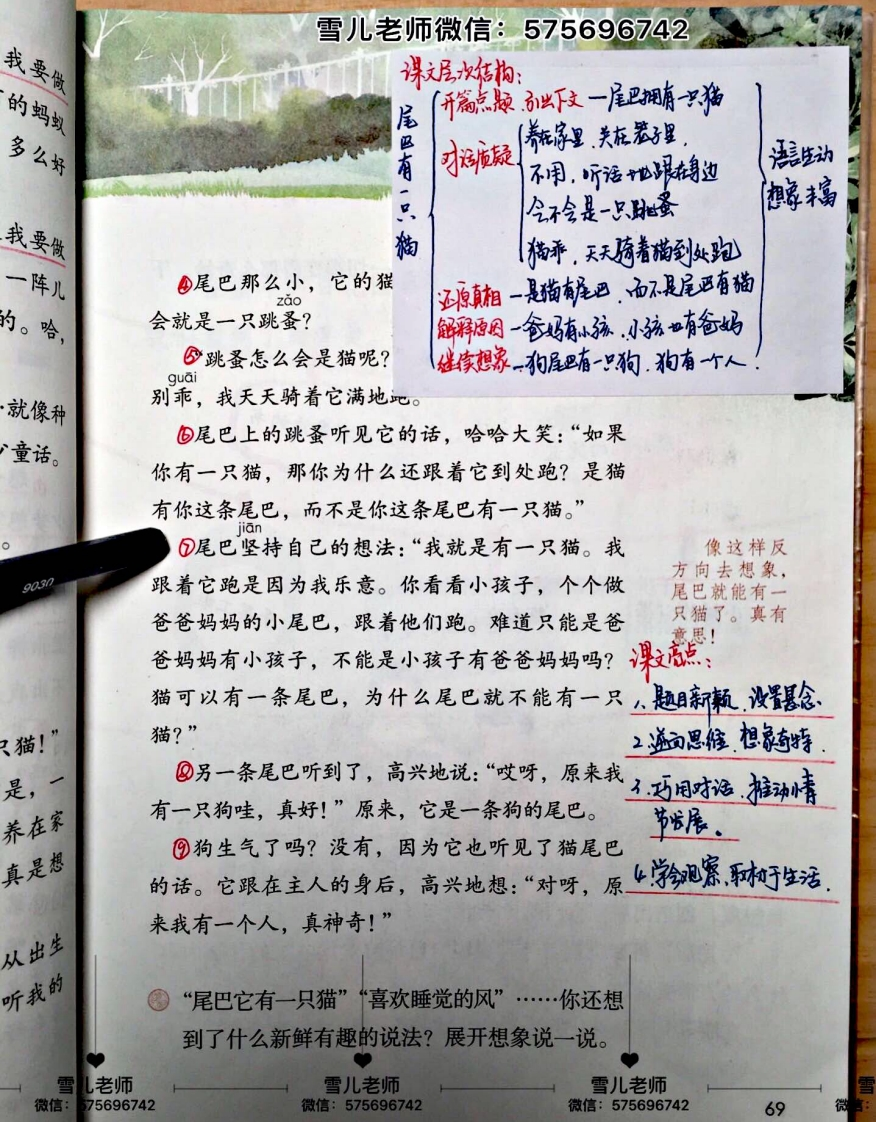 雪儿老师微信：575696742
我要做
的蚂蚁
多么好
我要做
一阵儿
的。哈，
就像种
童话。
。
只猫！”
是，一
养在家
真是想
从出生
听我的
课文层次结构：
尾巴有一只猫
开篇点题、引出下文—尾巴拥有一只猫
对话质疑
养在家里，关在笼子里，
不用，听话地跟在身边
会不会是一只跳蚤
猫乖，天天骑着猫到处跑
还原真相—是猫有尾巴，而不是尾巴有猫
解释原因—爸妈有小孩，小孩也有爸妈
继续想象—狗尾巴有一只狗，狗有一个人．
语言生动
想象丰富
④尾巴那么小，它的猫
zǎo
会就是一只跳蚤？
⑤跳蚤怎么会是猫呢？
guāi
别乖，我天天骑着它满地跑。
⑥尾巴上的跳蚤听见它的话，哈哈大笑：“如果
你有一只猫，那你为什么还跟着它到处跑？是猫
有你这条尾巴，而不是你这条尾巴有一只猫。”
jiān
⑦尾巴坚持自己的想法：“我就是有一只猫。我
跟着它跑是因为我乐意。你看看小孩子，个个做
爸爸妈妈的小尾巴，跟着他们跑。难道只能是爸
爸妈妈有小孩子，不能是小孩子有爸爸妈妈吗？
猫可以有一条尾巴，为什么尾巴就不能有一只
猫？”
⑧另一条尾巴听到了，高兴地说：“哎呀，原来我
有一只狗哇，真好！”原来，它是一条狗的尾巴。
⑨狗生气了吗？没有，因为它也听见了猫尾巴
的话。它跟在主人的身后，高兴地想：“对呀，原
来我有一个人，真神奇！”
像这样反
方向去想象，
尾巴就能有一
只猫了。真有
意思！
课文亮点：
1、题目新颖、设置悬念．
2.逆向思维、想象奇特．
3.巧用对话、推动情
节发展。
4.学会观察、取材于生活．
9030
“尾巴它有一只猫”“喜欢睡觉的风”……你还想
到了什么新鲜有趣的说法？展开想象说一说。
雪儿老师
微信：575696742
雪儿老师
微信：575696742
雪儿老师
微信：575696742
69